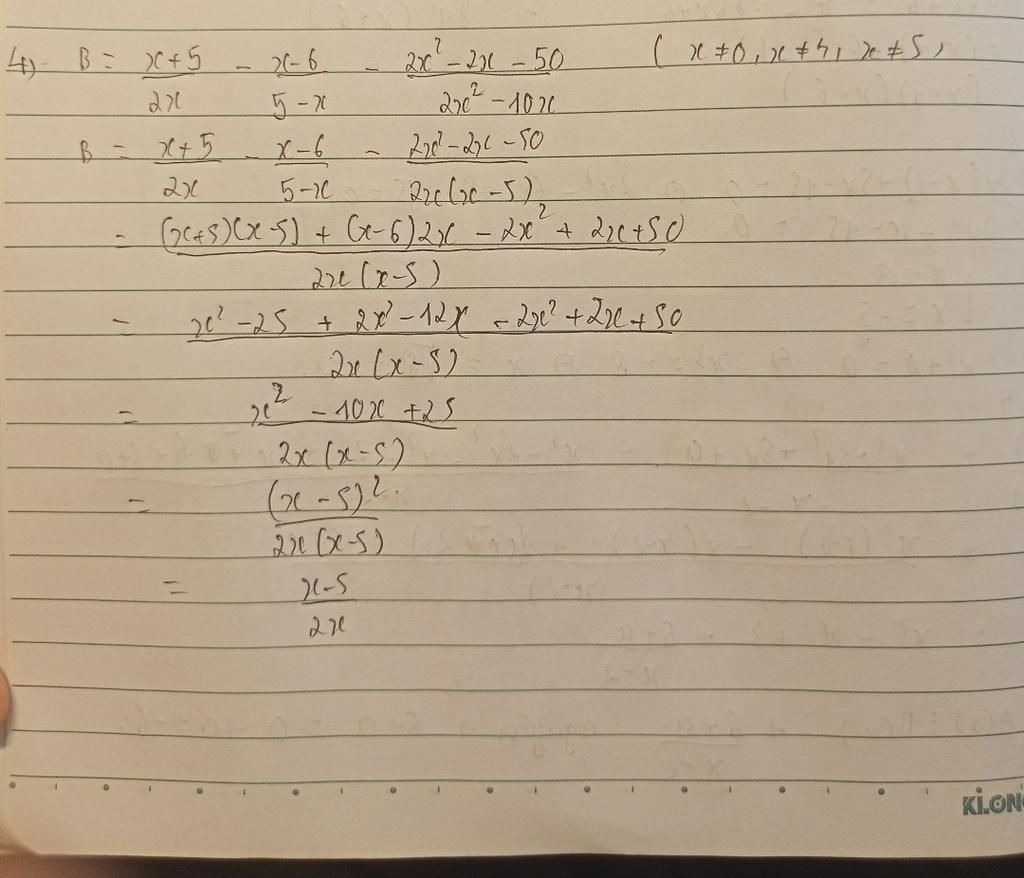 4) B = x+5/2x - x-6/5-x - 2x² - 2x - 50/2x² - 10x (x ≠ 0, x ≠ 4, x ≠ 5)
B = x+5/2x - x-6/5-x - 2x² - 2x - 50/2x(x-5)
= (x+5)(x-5) + (x-6)2x - 2x² + 2x + 50/2x(x-5)
= x² - 25 + 2x² - 12x - 2x² + 2x + 50/2x(x-5)
= x² - 10x + 25/2x(x-5)
= (x-5)²/2x(x-5)
= x-5/2x